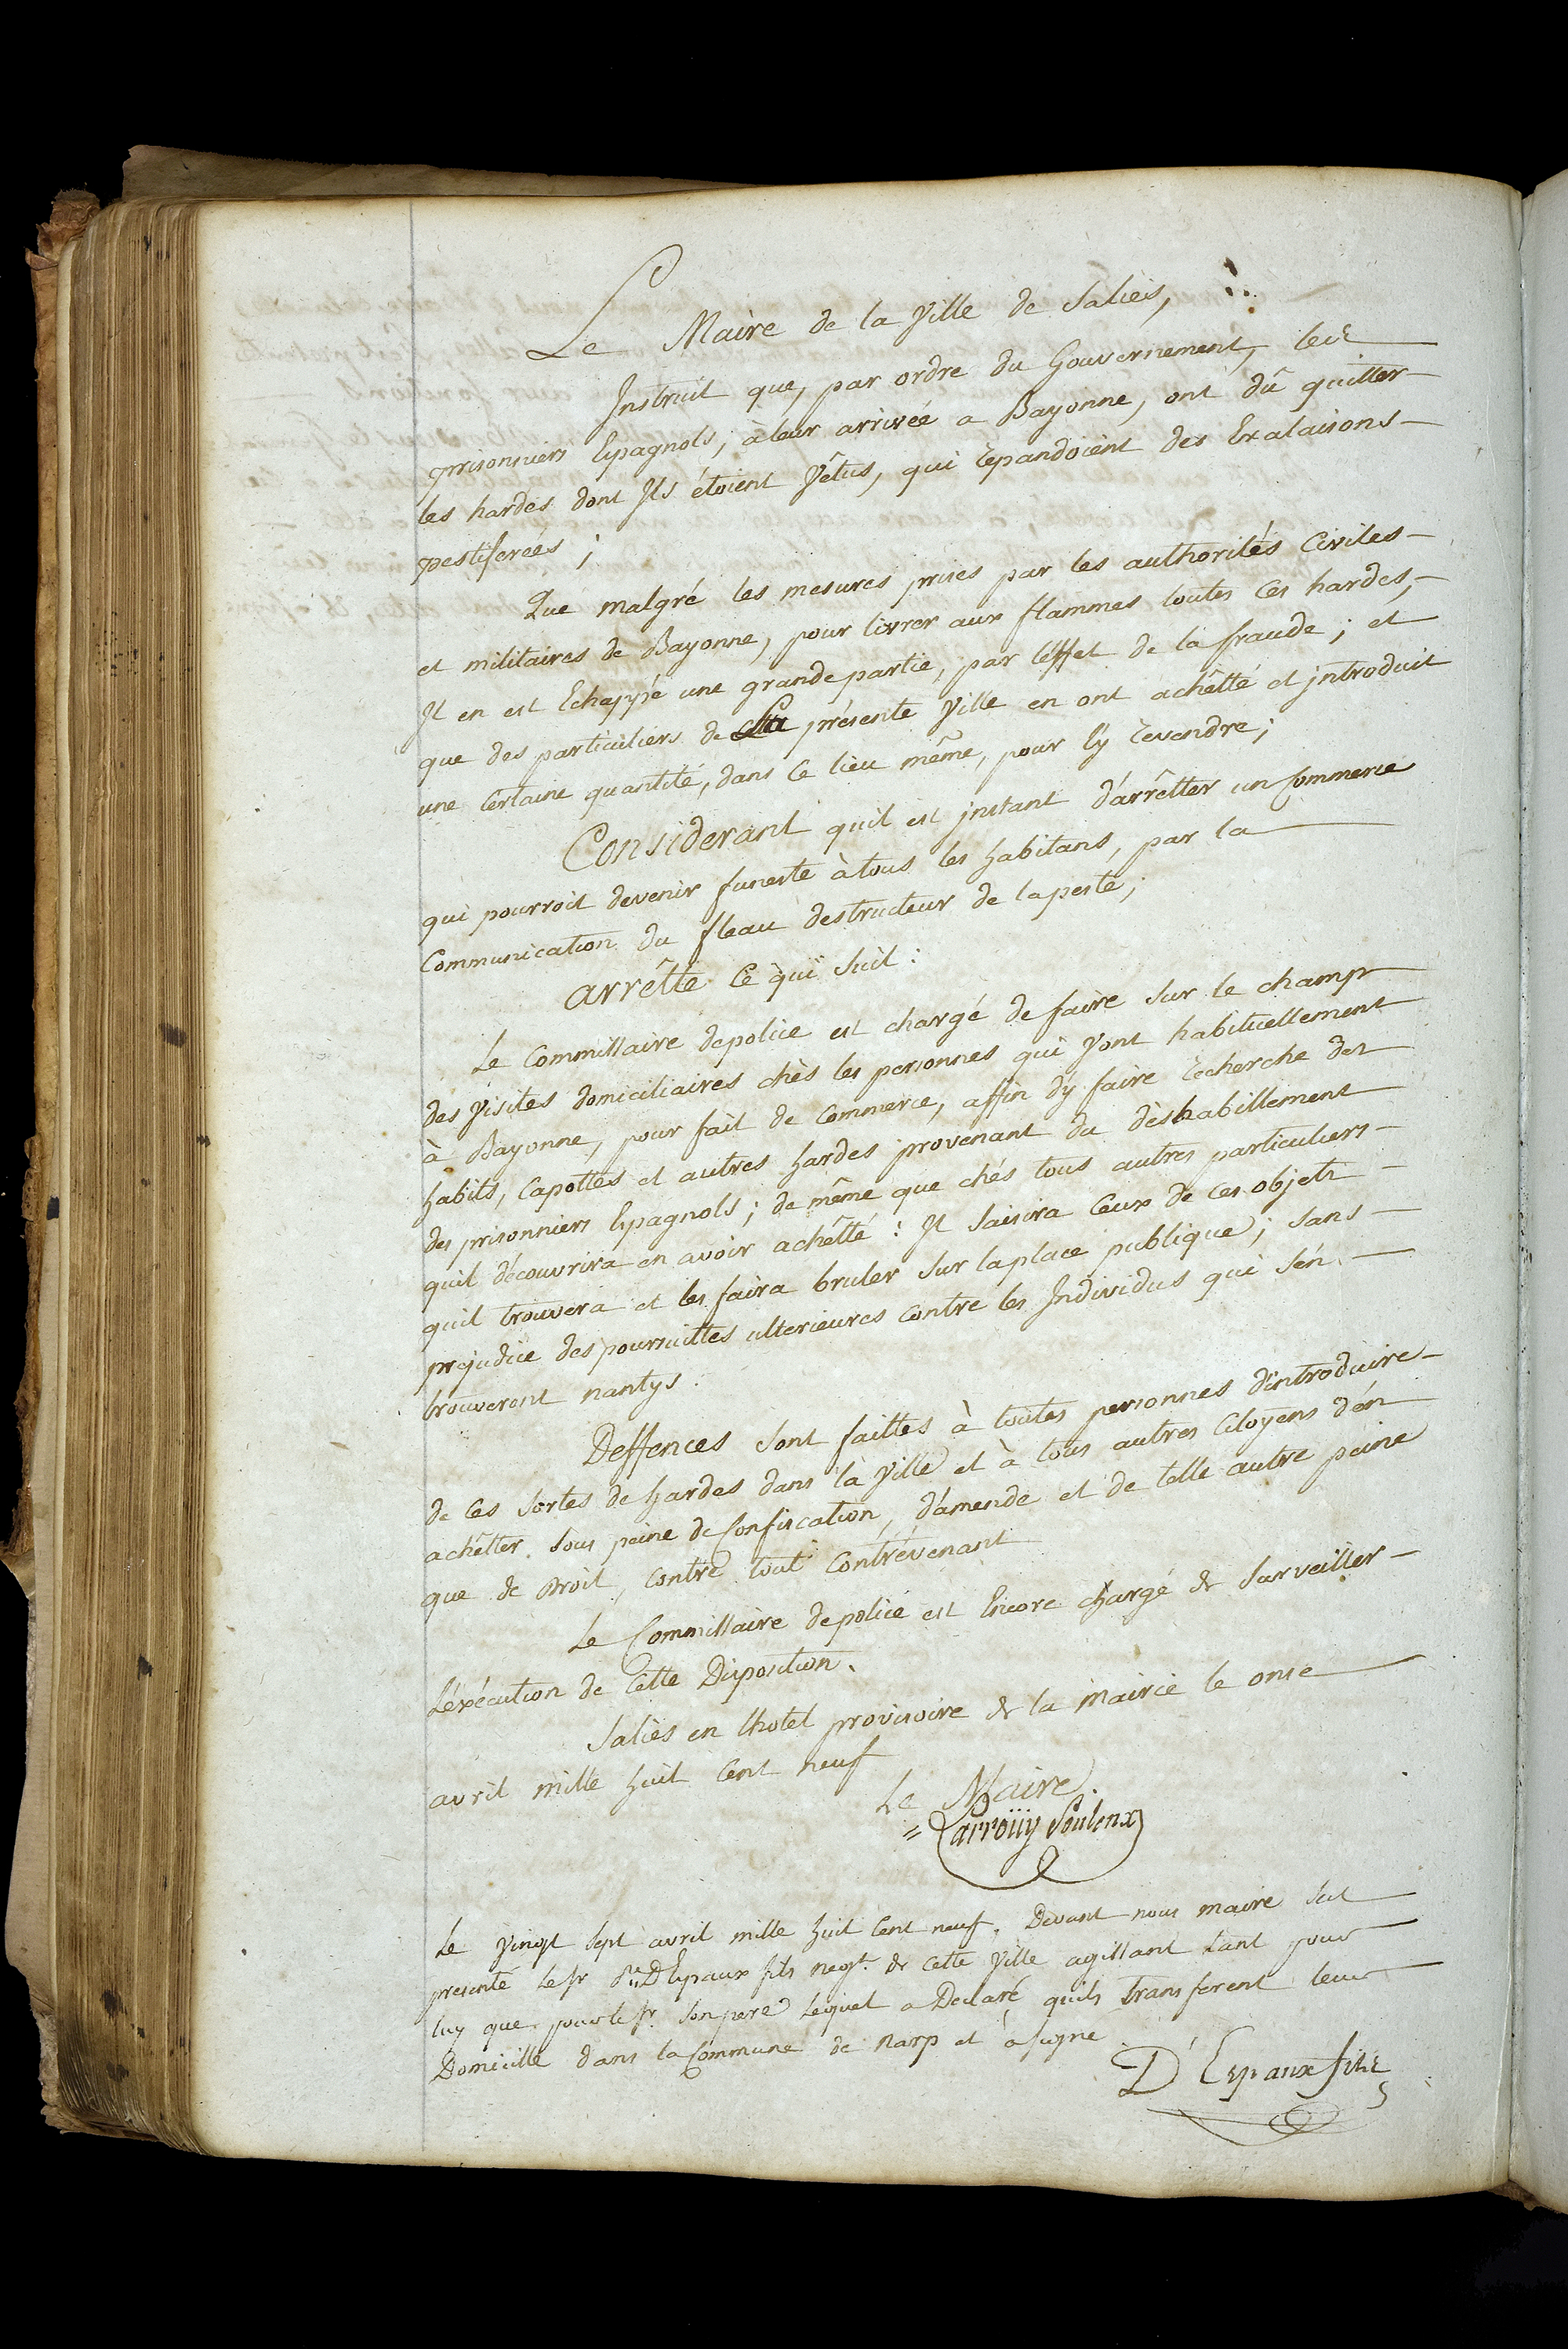 Le Maire de la Ville de Saliès,
Instruit que, par ordre du Gouvernement, les
prisonniers Espagnols, à leur arrivée a Bayonne, ont dû quitter
les hardes dont Ils étoient Vêtus, qui repandoient des Exalaisons
pestiferées ;
Que malgré les mesures prises par les authorités Civiles
et militaires de Bayonne, pour livrer aux flammes toutes Ces hardes,
Il en est Echappé une grande partie, par l'éffet de la fraude ; et
que des particuliers de la présente Ville en ont achêtté et jntroduit
une Certaine quantité, dans Ce lieu même, pour l'y revendre ;
Considerant quil est jnstant d'arrêtter un Commerce
qui pourroit devenir funeste à tous les habitans, par la
Communication du fleau destructeur de la peste ;
arrêtte Ce qui Suit :
Le Commissaire de police est chargé de faire Sur le champ
des Visites domiciliaires chès les personnes qui Vont habituellement
à Bayonne, pour fait de Commerce, affin d'y faire recherche des
habits, Capottes et autres hardes provenant du dèshabillement
des prisonniers Espagnols ; de même que chés tous autres particuliers
quil découvrira en avoir achêtté : Il Saisira Ceux de Ces objets
quil trouvera et les faira bruler Sur la place publique ; Sans
prejudice des poursuittes ulterieures Contre les Individus qui S'én
trouveront nantys.
Deffences Sont faittes à toutes personnes d'introduire
de Ces Sortes de hardes dans la Ville et à tous autres Citoyens d'én
achêtter. Sous peine de Confiscation, d'amende et de telle autre peine
que de Droit, Contre tout Contrévenant
Le Commissaire de police est Encore chargé de Surveiller
L'éxécution de Cette Disposition.
Saliès en lhotel provisoire de la mairie le onse
avril mille huit Cent neuf
Le Maire.
= Larroüy Soulenx
Le Vingt Sept avril mille huit Cent neuf, Devant nous maire Sest
presenté Le Sr D'Espaux fils negt. de Cette Ville agissant tant pour
luy que pour le Sr. Son pere Lequel a Declaré quils transferent leur
Domicille dans la Commune de Narp et à Signe
D'Espaux fils